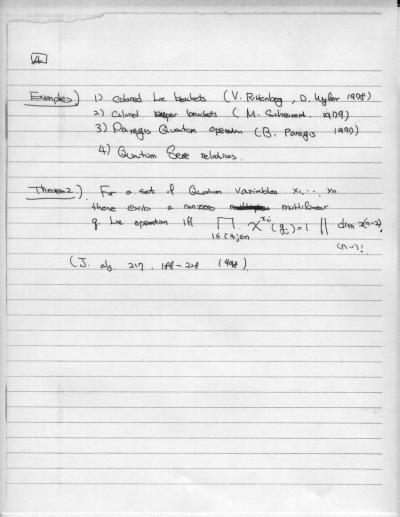 A
Examples) 1) colored Lie brackets (V. Rittenberg, D. Wyler 1978)
2) colored super brackets (M. Scheunert 1979)
3) Paregis Quantum operation (B. Paregis 1997)
4) Quantum Serre relations.
Theorem2.) For a set of Quantum variables x₁, ⋯, xn
there exists a nonzero multilinear
q. Lie operation iff ∏ 1≤i≠j≤n χ^{xi}(gj)=1 || dim ≥(n-2)!
(n-1)!
(J. alg. 217, 188-228 1998)